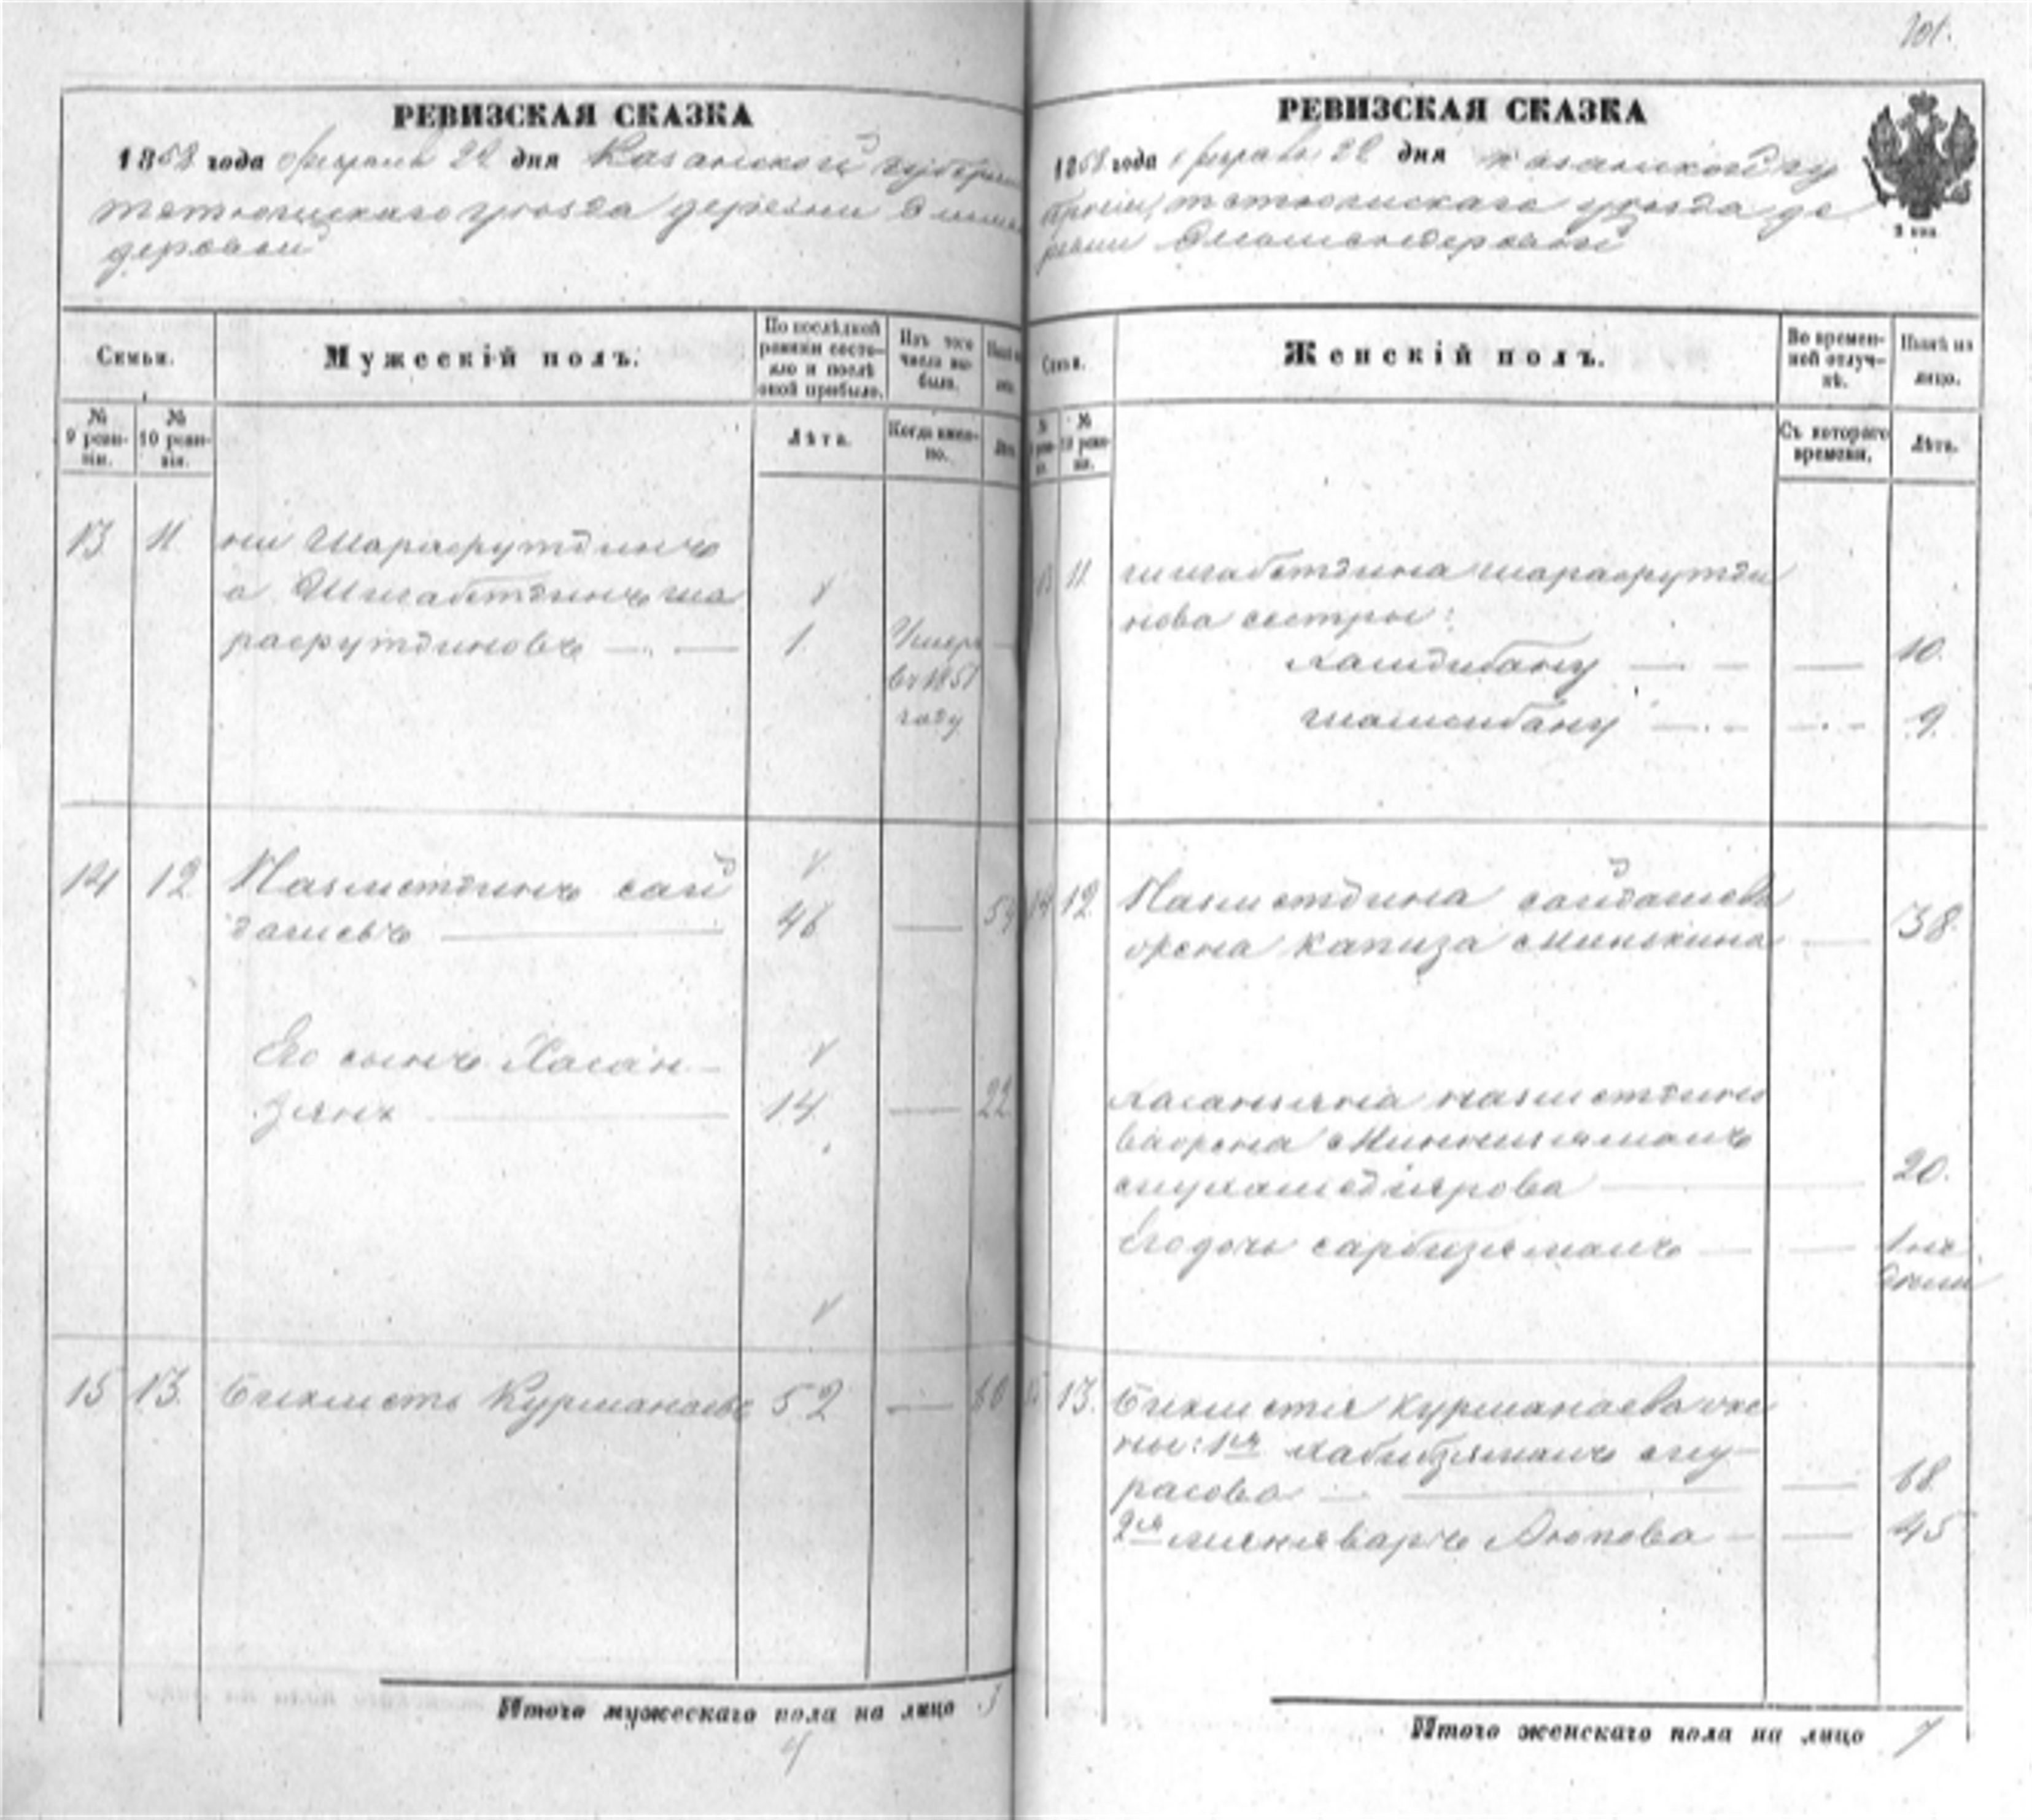 101.
РЕВИЗСКАЯ СКАЗКА
1858 года февраля 22 дня Казанской губернии
тетюшскаго уезда деревни
деревни
Семьи.
Мужескій полъ.
По послѣдней ревизіи состояло и послѣ оной прибыло.
Изъ того числа выбыло.
№ 9 ревизіи.
№ 10 ревизіи.
Лѣта.
Когда именно.
Лѣта
13 11 ни Шарафутдинъ
а Шигабетдинъ Ша
рафутдиновъ 1. Умеръ
въ 1851
году
14 12 Назметдинъ сай
дашевъ 46 54
Его сынъ Хасан
зянъ 14 22
15 13. Бикместь Курманаевъ 52 60
Итого мужескаго пола на лицо 3
4
РЕВИЗСКАЯ СКАЗКА
1858 года февраля 22 дня Казанской гу
берніи, тетюшскаго уезда де
ревни
Семьи.
Женскій полъ.
Во временной отлучкѣ.
Нынѣ на лицо.
№ 10 ревизіи.
Съ котораго времени.
Лѣта.
13 11 шигабетдина шарафутди
нова сестры:
10.
шамсибану 9.
14 12. Назметдина сайдашева
жена капиза 38
хасанзяна назметдино
ва жена
20.
Его дочь сарбизямалъ
15 13. Бикместя курманаева же
ны: 1я хабибзямалъ
68
2я Аюпова 45
Итого женскаго пола на лицо 7